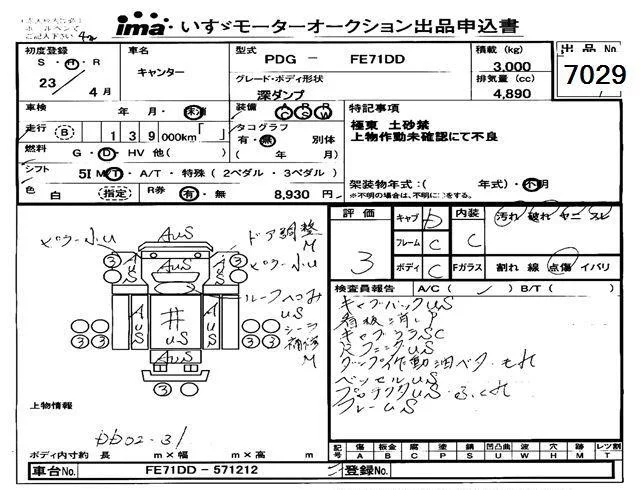 ima いすゞモーターオークション出品申込書
初度登録 車名 型式 積載 (kg) 出品 No.
S・H・R キャンター PDG － FE71DD 3,000 7029
23 4月 グレード・ボディ形状 排気量 (cc)
深ダンプ 4,890
車検 年 月・未 装備 AC PS PW 特記事項
走行 B 139 000km「 」 タコグラフ 極東 土砂禁
有・無 別体 上物作動未確認にて不良
燃料 G・D・HV 他( ) ( 年 月)
シフト 5I MT・A/T・特殊 (2ペダル・3ペダル)
架装物年式：( 年式)・不明
※不明の場合は、不明に○をする。
色 白 (指定) R券 有・無 8,930 円
評価 キャブ D 内装 汚れ 破れ ヤニ スレ
3 フレーム C C
ボディ C Fガラス 割れ 線 点傷 イバリ
検査員報告 A/C ( ) B/T ( )
キャブバックUS
看板消しP
キャブウラSC
Rフェンダ US
ダンプ作動油ベタ・モレ
ベッセルUS
プロテクタUS・ふくれ
フレームUS
ピラー小U AUS ドア調整 M
ピラー小U
ルーフへこみ US
シーラ補修 M
井 US
AUS
3 3 3 3 3 3 3
上物情報
DD02-31
ボディ内寸約 長 m×幅 m×高 m
記号 傷 板金 腐 塗 錆 凹凸曲 波 穴 跡 レツ割
A B C P S U W H M T
車台No. FE71DD－571212 登録No.